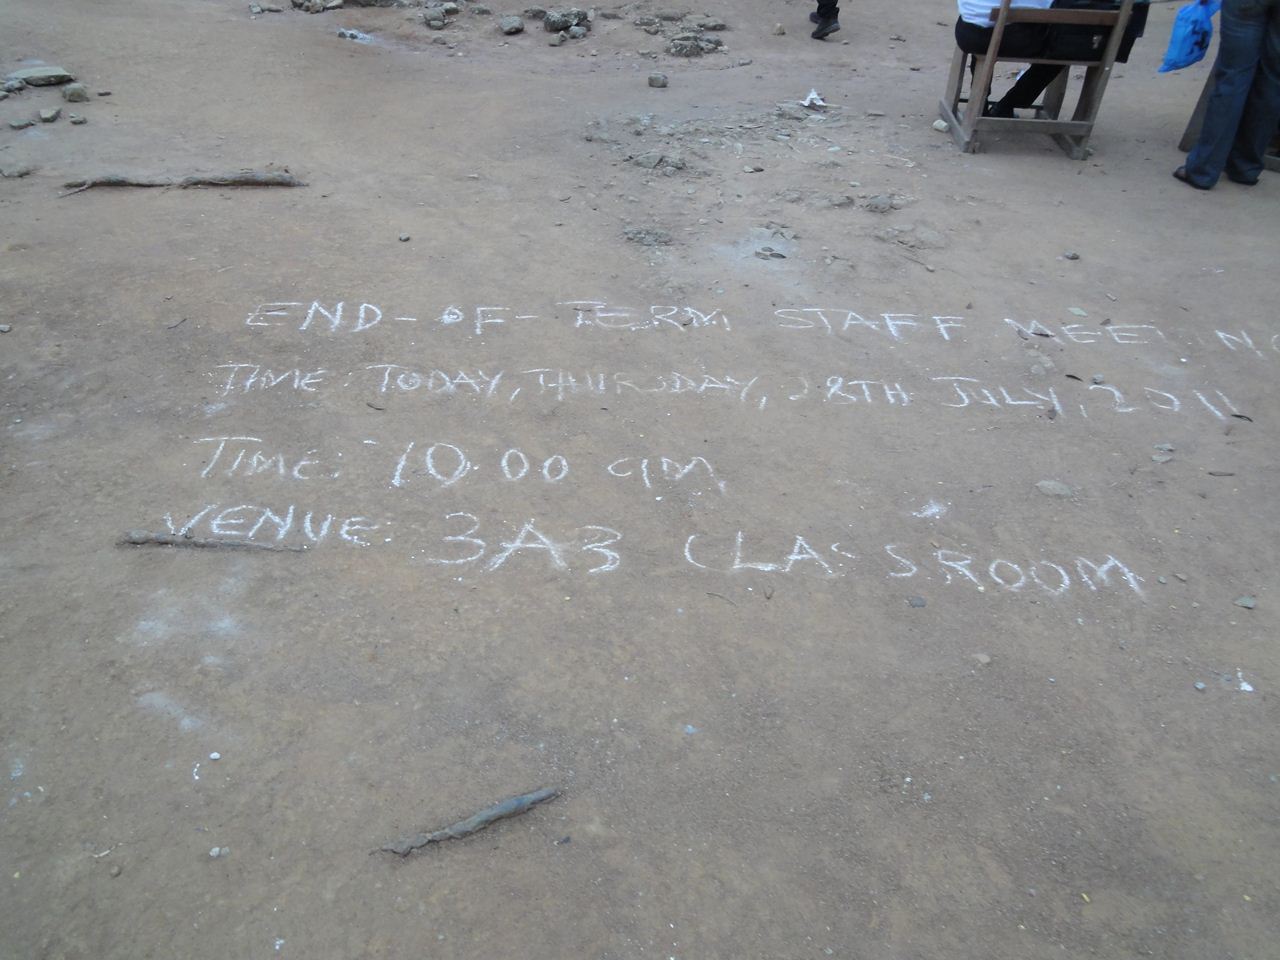 END-OF-TERM STAFF MEETING
TIME: TODAY, THURSDAY, 28TH JULY, 2011
TIME: 10.00 am
VENUE: 3A3 CLASSROOM